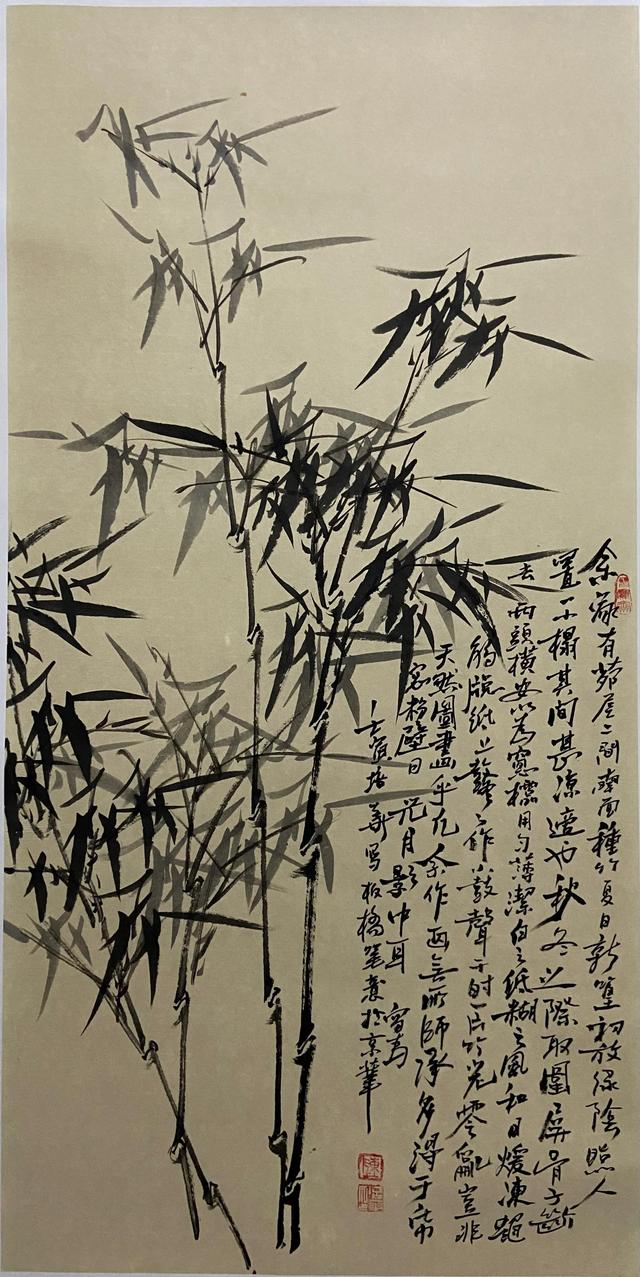 余家有茆屋二間南面種竹夏日新篁初放綠陰照人
置一小榻其間甚涼適也秋冬之際取圍屏骨子斷
去兩頭橫安以為窗櫺用勻薄潔白之紙糊之風和日煖凍蠅
觸窗紙上鼕鼕作小鼓聲于時一片竹光零亂豈非
天然圖畫乎凡余作畫無所師承多得于帋
窗粉壁日光月影中耳
壬寅培寫板橋筆意於京華